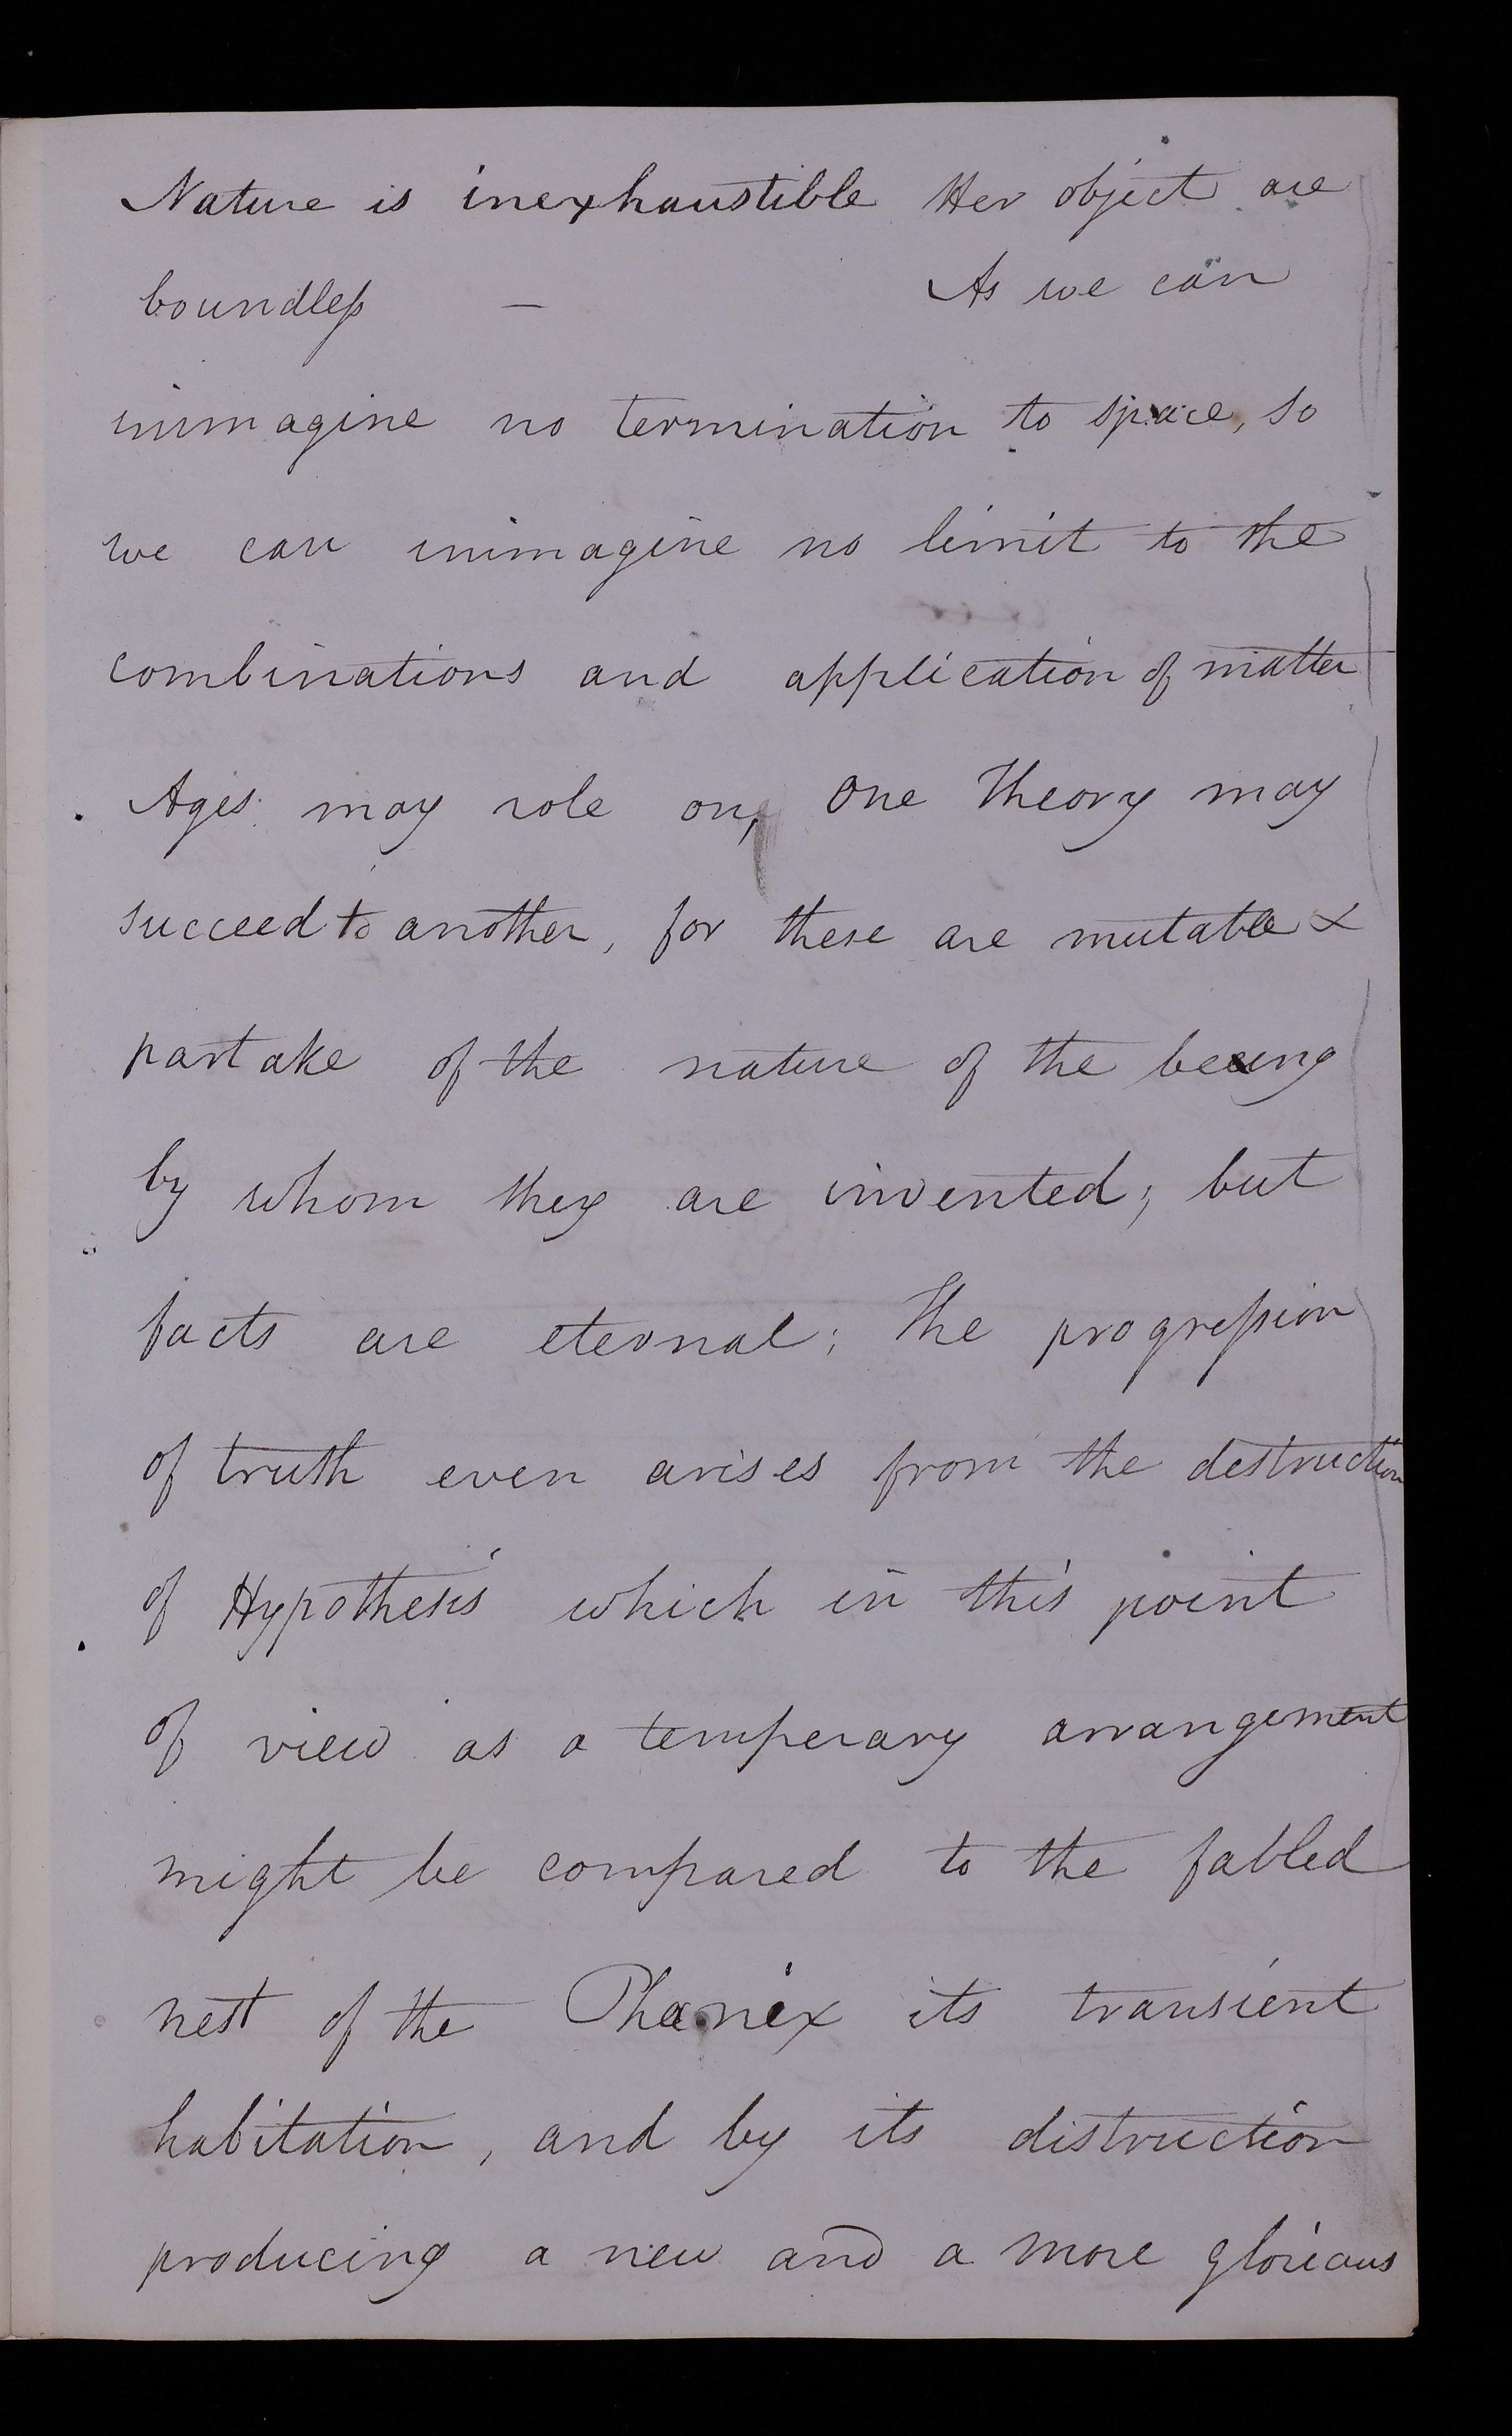 Nature is inexhaustible Her object are
boundless — As we can
immagine no termination to space, so
we can immagine no limit to the
combinations and application of matter
Ages may role on, One Theory may
succeed to another, for these are mutable &
partake of the nature of the being
by whom they are invented; but
facts are eternal; The progression
of truth even arises from the destruction
of Hypothesis which in this point
of view as a temperary arrangement
might be compared to the fabled
nest of the Phœnix its transient
habitation, and by its distruction
producing a new and a more glorious